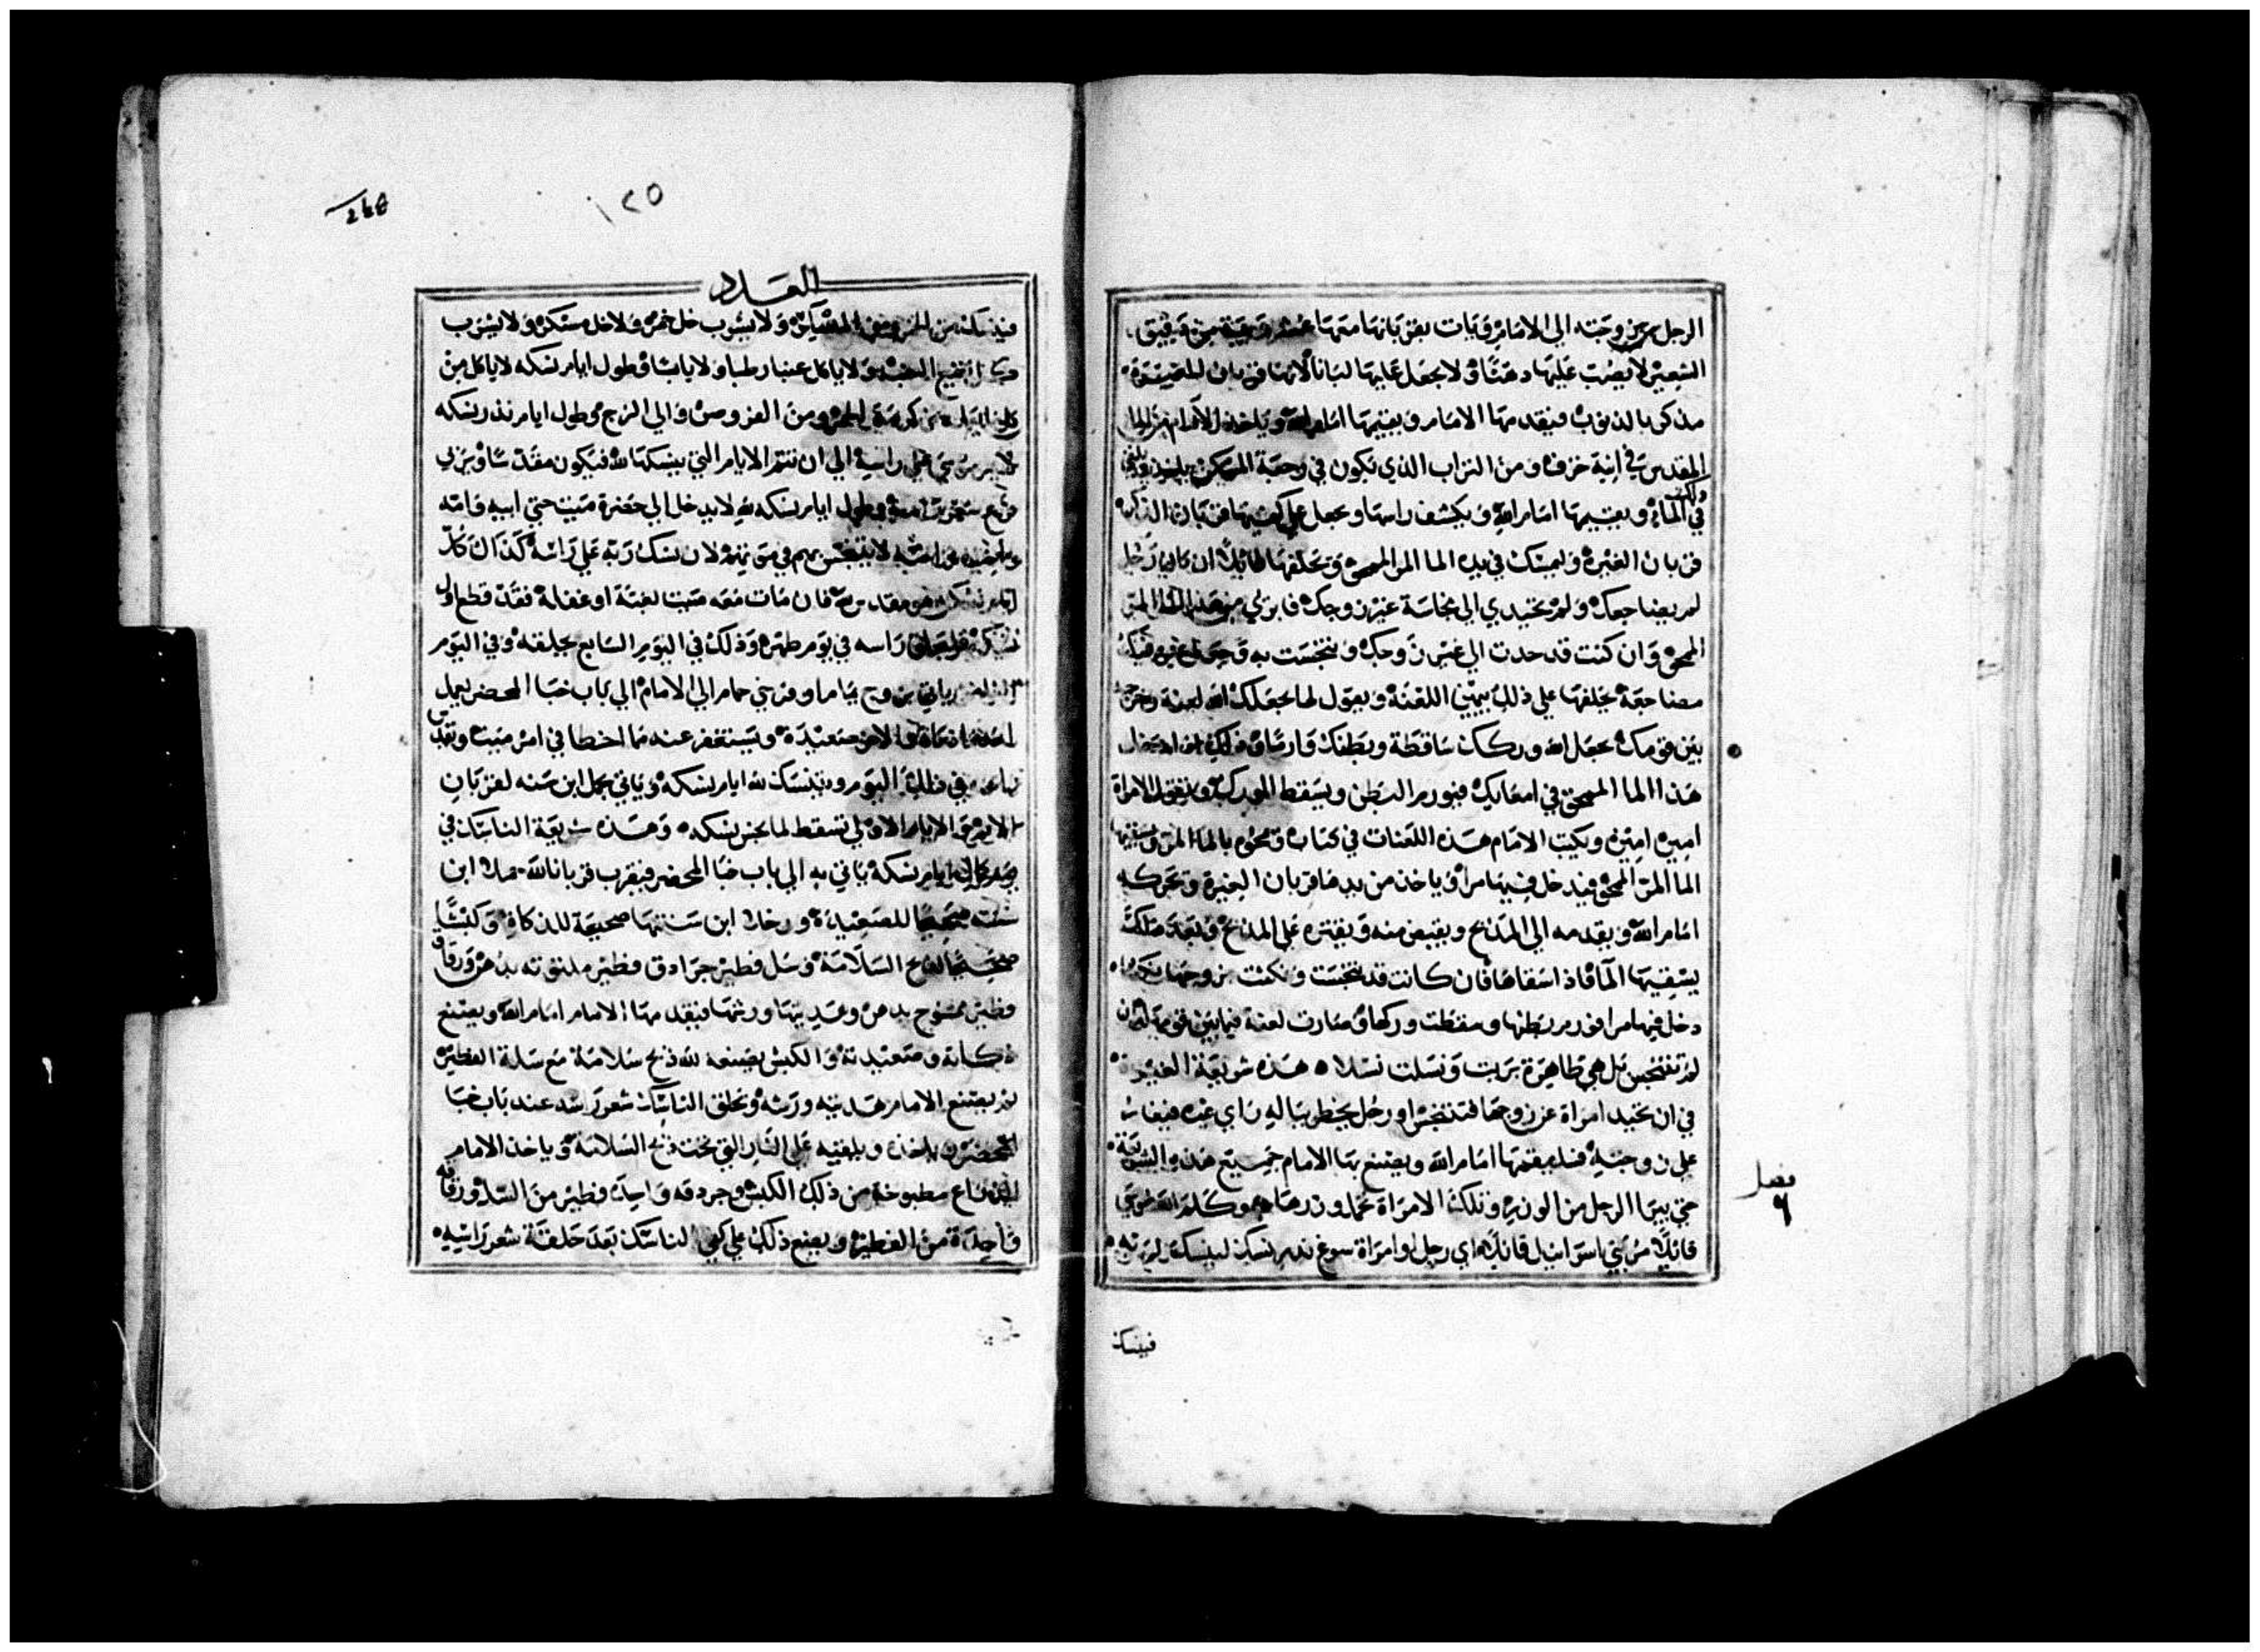 الرجل بزوجته الي الامام وَيَات بقربانها معَهَا عشر وَيبَة من دَقيق
الشعير لا يصُبّ عَليهَا دهنًا وَلا يجعَل عَليهَا لبَانا لانهَا قربان الغيرَة
مذكر بالذنوب فيقدمهَا الامَام ويقيمهَا امَام الله وياخذ الامَام من الما
المقدس في انية خزف ومن التراب الذي يكون في المسكن ياخذ ويلقي
في المآء ويقيمها امَام الله وَيكشف راسهَا ويجعل علي كفيها قربان الذكر
قربان الغيرَة وليمسك في يده الما المر الممحق وَيحلفهَا قائلًا ان كان رجل
لم يضاجعك ولم تحيدي الي نجاسَة غير زوجك فابري من هذا الما المر
الممحق وَان كنت قد حدت الي غير زوجك وتنجسَت به
مضاجعَة يحلفهَا علي ذلك بيمين اللعنَة ويقول لها يجعَلك الله لعنة
بَين قومك يجعَل الله وركك سَاقطَة وبَطنك وارمًا
هَذا الما الممحق في امعَايك فيورم البَطن ويسَقط الورك وتقول الامراة
امين امين ويكتب الامَام هَذه اللعَنات في كتاب وَيمحوه بالمآ المر ويسقيها
الما المر الممحق فيدخل فيها مرا وياخذ من يدهَا قربان الغيرة ويحركه
امَام الله ويقدمه الي المذبح ويقبض منه وَيقتره علي المذبح وبَعد ذلك
يسقيهَا المآ فاذا سقاهَا فان كانت قد تنجسَت ونكثت بزوجهَا
دخل فيها مرا فورم بَطنها وسقطت وركها وصَارت لعنة فيمابَين قومها وان
لم تتنجس بل هي طَاهرَة برَيت وَنسَلت نسَلا هَذه شريعَة الغيرة
في ان تحيد امرَاة عن زوجها فتتنجس او رجل يخطر ببَاله راي غيرة فيغار
علي زوجته فليقمهَا امَام الله ويصنع بهَا الامام جميع هذه الشريعَة
حتي يبرَا الرجل من الوزر وتلك الامرَاة تحمل وزرهَا وَكلم الله مُوسَي
قائلًا مُر بَني اسرَائيل قائلًا اي رجل او امرَاة سوغ نذر نسك لينسك لربه
فينسك
فصل
٦
١٢٥
248
العَدد
فينسك من الخمر ومن المسكر وَلا يشرب خل خمر وَلا خل مسكر وَلا يشرب
نقيع العنب وَلا ياكل عنبا رطبا ولا يابسًا وطول ايام نسكه لا ياكل من
كرمة الخمر ومن الغروصن والي الزج وطول ايام نذر نسكه
لا يمر مُوسي علي راسه الي ان تتم الايام التي ينسكهَا لله فيكون مقدسًا وَيربي
شعر راسه وطول ايام نسكه لله لا يدخل الي حضرة مَيت حتي ابيه وَامّه
واخيه واخته لا يتنجس بهم في مَوتهم لان نسك رَبه علي رَاسه كذاك كل
ايام نسكه هو مقدس لله فان مَات معَه مَيت بغتة او غفلة فقد قطع اول
نسكه فليحلق رَاسه في يَوم طهره وَذلك في اليوم السَابع يحلقه وفي اليَوم
الثامن ياتي بزوج يمَام او فرخي حمام الي الامام الي باب خبَا المحضر يعمل
الامَام احدَاهما ذكاة والاخر صَعيدَة ويستغفر عنه مما اخطا في امر مَيت ويقدس
راسه في ذلك اليَوم ويتنسَك لله ايام نسكه وَياتي بحمل ابن سَنه لقربان
الاثم وَالايام الاولي تسقط لما نجس نسكه وَهَذه شريعَة الناسَك في
يوم كمال ايام نسكه يَاتي به الي باب خبَا المحضر فيقرب قربانا لله حملا ابن
سَنته صحيحًا للصَعيدَة ورخلا ابن سَنتهَا صحيحَة للذكاة وَكبشًا
صحيحًا لذبح السَلامَة وَسَل فطير جرَادق فطير ملتوته بدهن وَرقاق
فطير ممسُوح بدهن وهَديتهَا ورشها فيقدمهَا الامام امَام الله ويصنع
ذكاته وصَعيدته وَالكبش يصنعه لله ذبح سَلامَة مع سَلة الفطير
ثم يصنع الامام هَديته ورَشه وَيحلق الناسك شعر رَاسه عند بَاب خبَا
المحضر وياخذه ويلقيه علي النَار التي تحت ذبح السَلامَة وَياخذ الامام
الذراع مطبوخة من ذلك الكبش وجردقه وَاحدَة فطير من السَل ورقاقه
وَاحدَة من الفطير ويضع ذلك علي كفي الناسَك بَعد حَلقَة شعر رَاسه